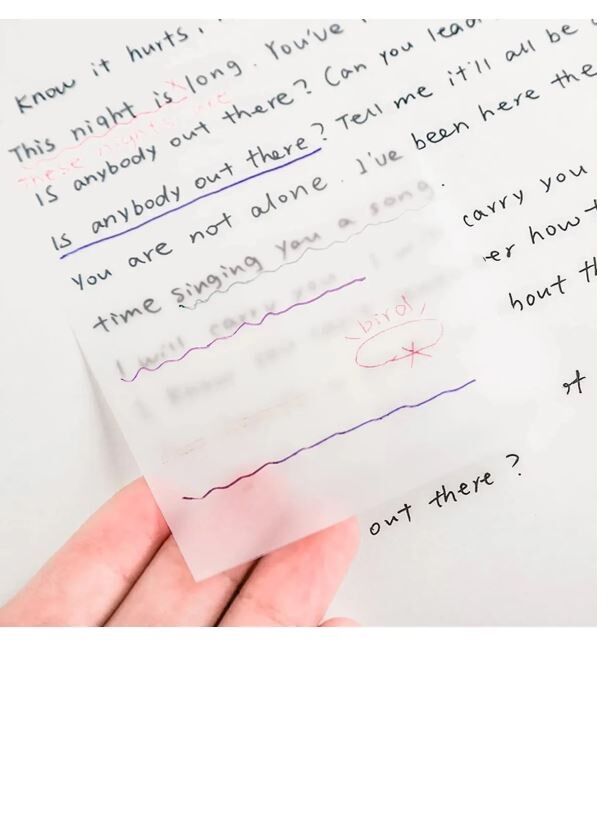 Know it hurts,
This night is long. You've
these nights are
Is anybody out there? Can you lead
Is anybody out there? Tell me it'll all be
You are not alone. I've been here the
time singing you a song.
I will carry you carry you
I know er how t
bird
bout th
out there?